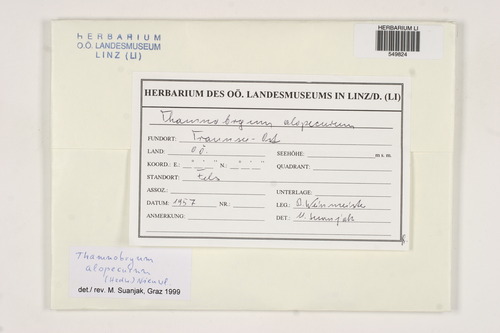 HERBARIUM
O.Ö. LANDESMUSEUM
LINZ (LI)
HERBARIUM LI
549824
HERBARIUM DES OÖ. LANDESMUSEUMS IN LINZ/D. (LI)
Thamnobryum alopecurum
FUNDORT: Traunsee-Ost
LAND: OÖ. SEEHÖHE: m s. m.
KOORD.: E.: ° ' " N.: ° ' " QUADRANT:
STANDORT: Fels
ASSOZ.: UNTERLAGE:
DATUM: 1957 NR.: LEG.:
ANMERKUNG: DET.: M. Suanjak
Thamnobryum
alopecurum
(Hedw.) Nieuwl
det./ rev. M. Suanjak, Graz 1999